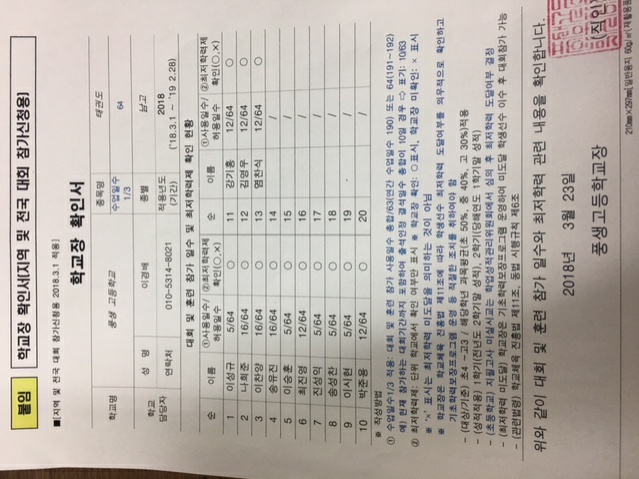 붙임
학교장 확인서(지역 및 전국 대회 참가신청용)
■[지역 및 전국 대회 참가신청용 2018.3.1 적용]
학교장 확인서
학교명 풍생 고등학교 종목명 태권도
수업일수 1/3 64
학교 담당자 성 명 이경배 종별 남고
연락처 010-5314-8021 적용년도 (기간) 2018 ('18.3.1 ~ '19 2.28)
대회 및 훈련 참가 일수 및 최저학력제 확인 현황
순 이름 ①사용일수/허용일수 ②최저학력제 확인(○,×) 순 이름 ①사용일수/허용일수 ②최저학력제 확인(○,×)
1 이상규 5/64 ○ 11 강기홍 12/64 ○
2 나희준 16/64 ○ 12 김영우 12/64 ○
3 이찬양 16/64 ○ 13 염찬식 12/64 ○
4 송유진 16/64 ○ 14 /
5 이승훈 5/64 ○ 15 /
6 최진영 12/64 ○ 16 /
7 진성익 5/64 ○ 17 /
8 송성찬 5/64 ○ 18 /
9 이시현 5/64 ○ 19 /
10 박준용 12/64 ○ 20 /
※ 작성방법
① 수업일수1/3 적용: 대회 및 훈련 참가 사용일수 총합/63(연간 수업일수 190) 또는 64(191~192)
예) 현재 참가하는 대회기간까지 포함하여 출석인정 결석일수 총합이 10일 경우 ⇨ 표기: 10/63
② 최저학력제: 단위 학교에서 확인 여부만 표시 ※ 학교장 확인: ○표시, 학교장 미확인: × 표시
※ "×" 표시는 최저학력 미도달을 의미하는 것이 아님
※ 학교장은 학교체육 진흥법 제11조에 따라 학생선수 최저학력 도달여부를 의무적으로 확인하고
기초학력보장프로그램 운영 등 적절한 조치를 취하여야 함
- (대상/기준) 초4 ~고3 / 해당학년 과목평균(초 50%, 중 40%, 고 30%)적용
- (성적적용) 1학기(전년도 2학기말 성적), 2학기(당해연도 1학기말 성적)
- (초등학교) 지필고사 미실시교는 학업성적관리위원회에서 심의 후 최저학력 도달여부 결정
- (최저학력 미도달) 학교장은 기초학력보장프로그램 운영하여 미도달 학생선수 이수 후 대회참가 가능
- (관련법령) 학교체육 진흥법 제11조, 동법 시행규칙 제6조
위와 같이 대회 및 훈련 참가 일수와 최저학력 관련 내용을 확인합니다.
2018년 3월 23일
풍생고등학교장 (직인)